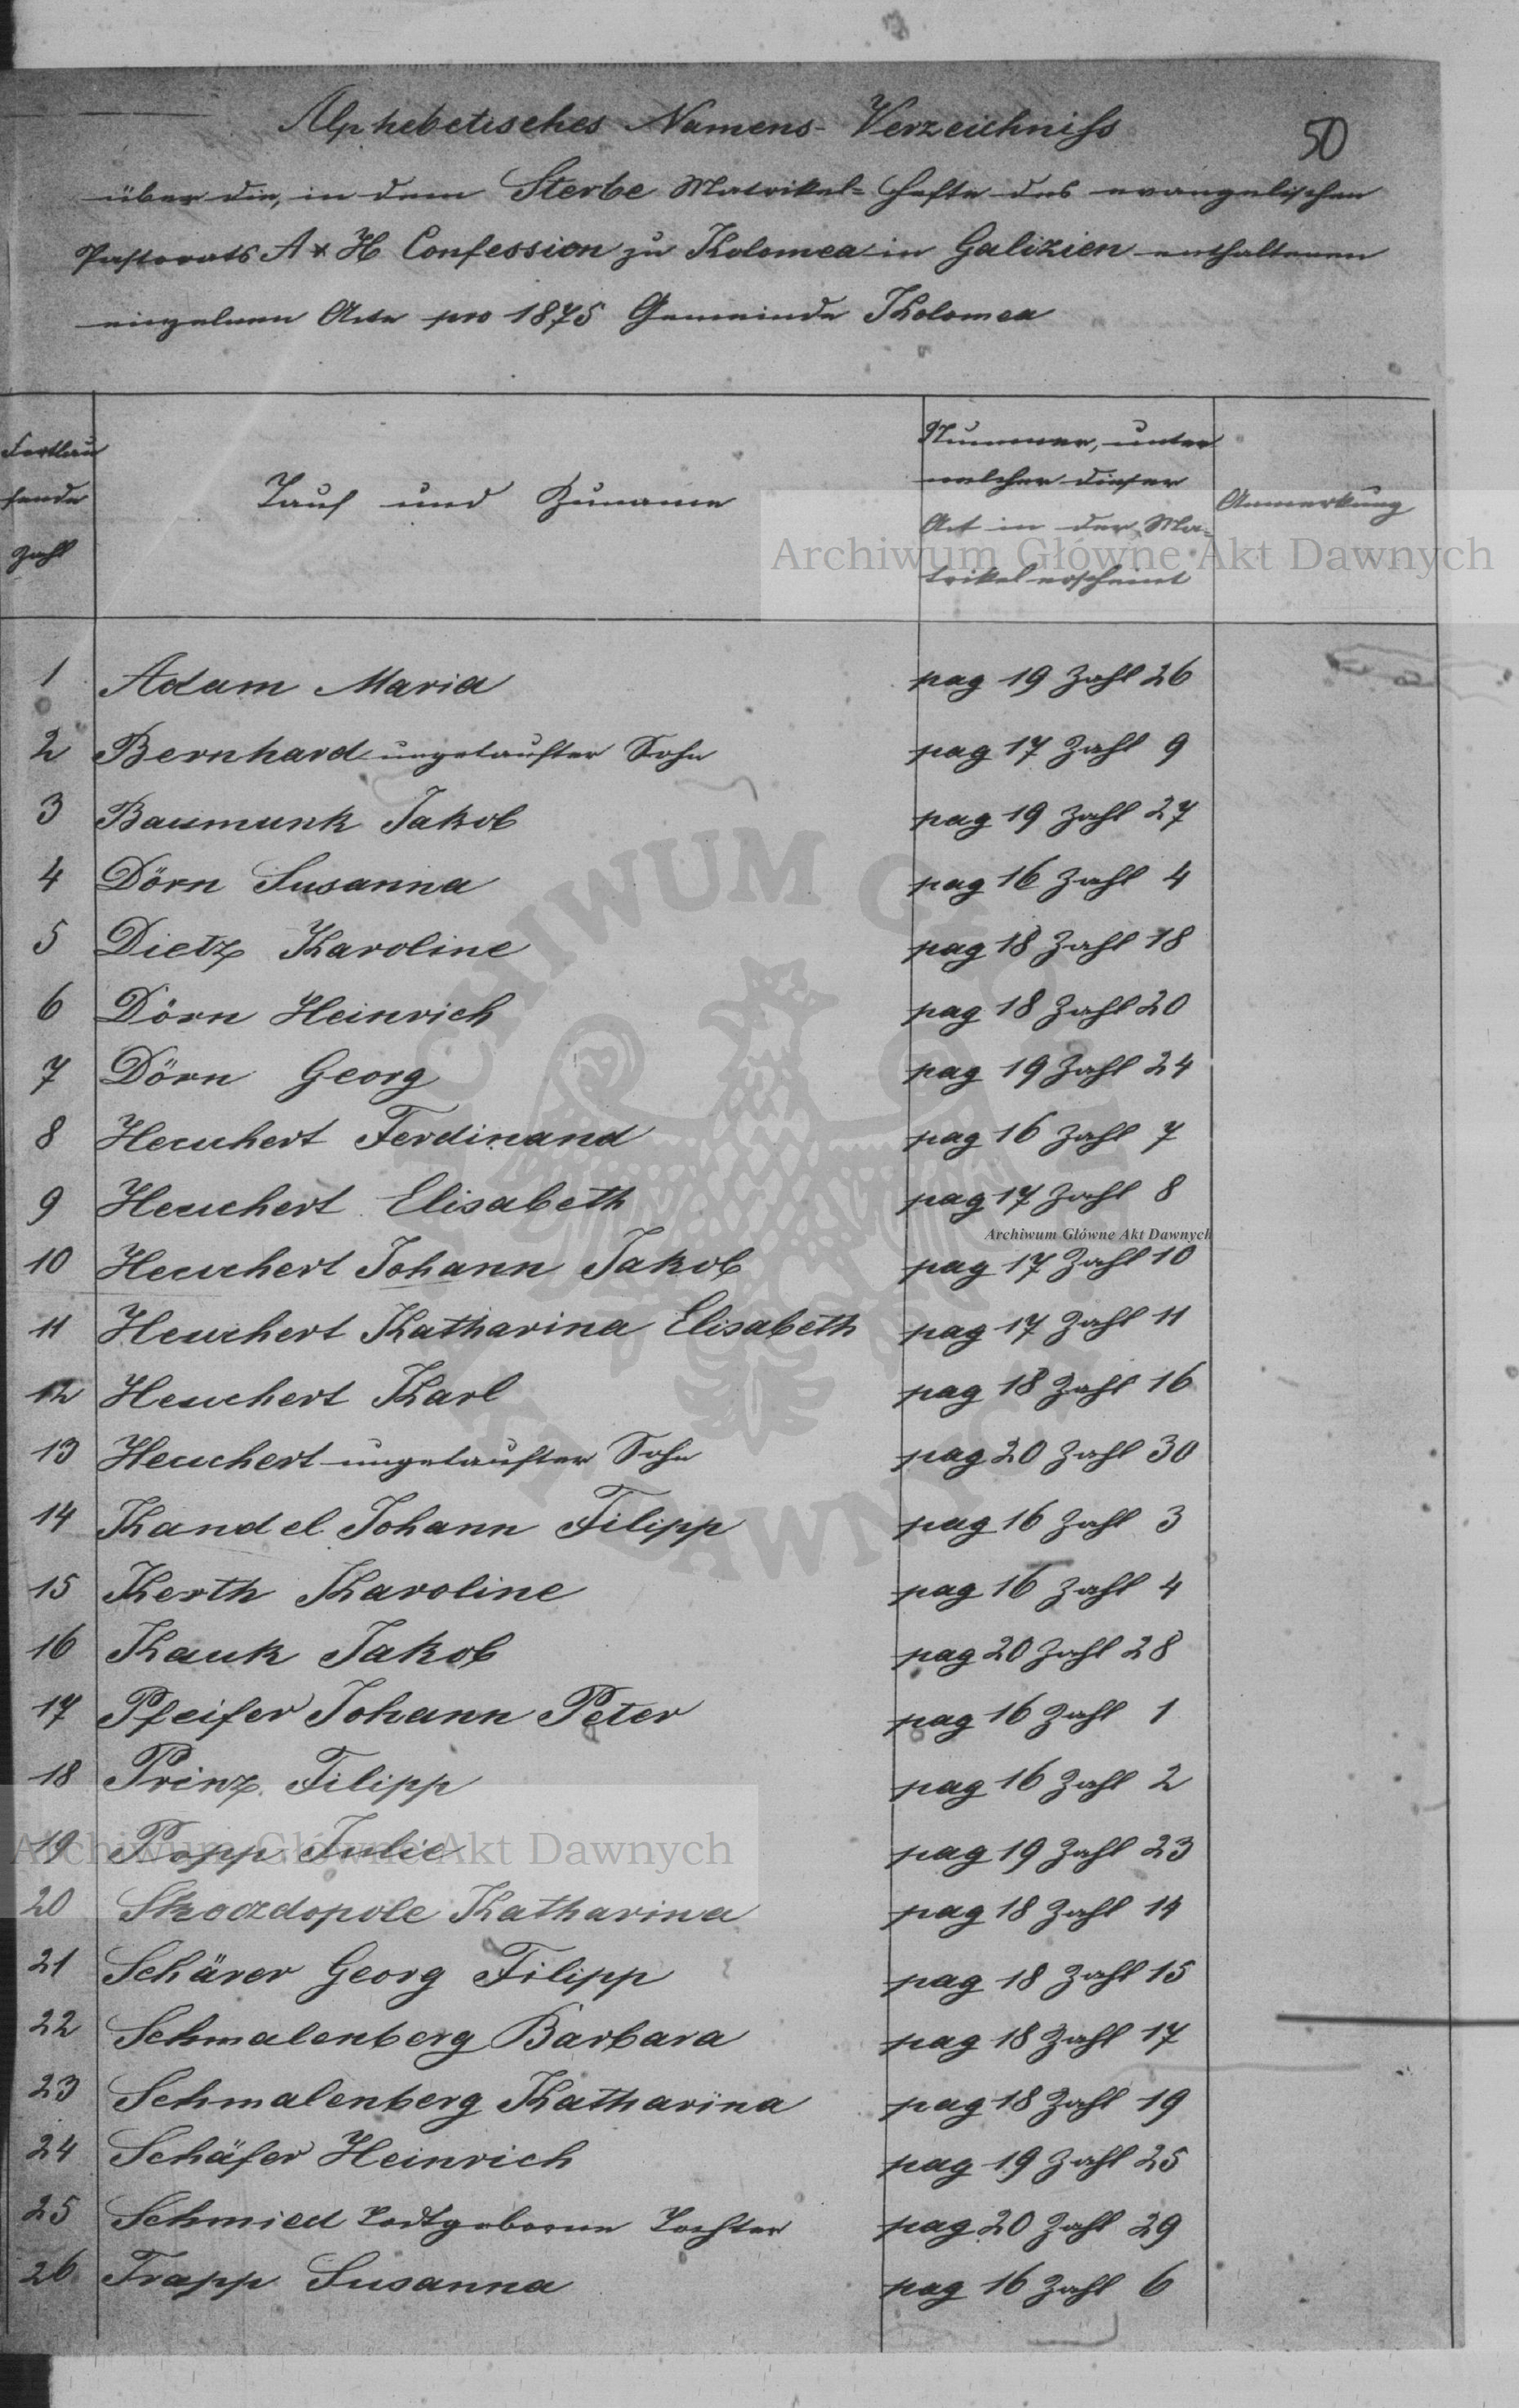 50
Alphebetisches Namens-Verzeichniss
über die, in dem Sterbe Matrikel-Hefte des evangelischen
Pastorats A & H Confession zu Kolomea in Galizien enthaltenen
einzelnen Acte pro 1875 Gemeinde Kolomea
Fortlau
fende
Zahl
Tauf und Zuname
Nummer, unter
welcher dieser
Act in der Ma-
trikel erscheint
Anmerkung
Archiwum Główne Akt Dawnych
1 Adam Maria pag 19 Zahl 26
2 Bernhard ungetaufter Sohn pag 17 Zahl 9
3 Baumunk Jakob pag 19 Zahl 27
4 Dörn Susanna pag 16 Zahl 4
5 Dietz Karoline pag 18 Zahl 18
6 Dörn Heinrich pag 18 Zahl 20
7 Dörn Georg pag 19 Zahl 24
8 Heuchert Ferdinand pag 16 Zahl 7
9 Heuchert Elisabeth pag 17 Zahl 8
Archiwum Główne Akt Dawnych
10 Heuchert Johann Jakob pag 17 Zahl 10
11 Heuchert Katharina Elisabeth pag 17 Zahl 11
12 Heuchert Karl pag 18 Zahl 16
13 Heuchert ungetaufter Sohn pag 20 Zahl 30
14 Kandel Johann Filipp pag 16 Zahl 3
15 Kerth Karoline pag 16 Zahl 4
16 Kauk Jakob pag 20 Zahl 28
17 Pfeifer Johann Peter pag 16 Zahl 1
18 Prinz Filipp pag 16 Zahl 2
19 Popp Julie pag 19 Zahl 23
Archiwum Główne Akt Dawnych
20 Skoczdopole Katharina pag 18 Zahl 14
21 Schärer Georg Filipp pag 18 Zahl 15
22 Schmalenberg Barbara pag 18 Zahl 17
23 Schmalenberg Katharina pag 18 Zahl 19
24 Schäfer Heinrich pag 19 Zahl 25
25 Schmied Todtgeborne Tochter pag 20 Zahl 29
26 Trapp Susanna pag 16 Zahl 6